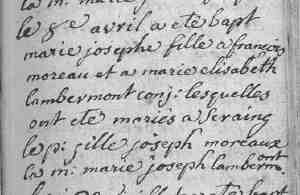 la m: marie
le 8e avril a ete bapt
marie josephe fille a françois
moreau et a marie elisabeth
lambermont conj: lesquelles
ont ete mariés a seraing
le p: gille joseph moreaux
la m: marie joseph lambermont